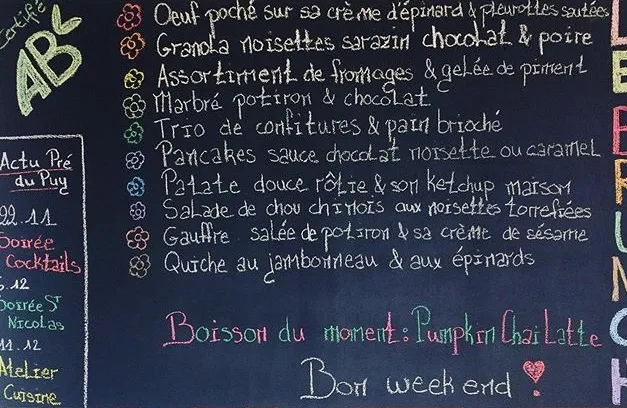 Certifié
AB
Oeuf poché sur sa crème d'épinard & pleurottes sautées
Granola noisettes sarazin chocolat & poire
Assortiment de fromages & gelée de piment
Marbré potiron & chocolat
Trio de confitures & pain brioché
Pancakes sauce chocolat noisette ou caramel
Patate douce rôtie & son ketchup maison
Salade de chou chinois aux noisettes torrefiées
Gauffre salée de potiron & sa crème de sésame
Quiche au jambonneau & aux épinards
Boisson du moment : Pumpkin Chai Latte
Bon week end !
Actu Pré
du Puy
22.11
Soirée
Cocktails
.12
Soirée St
Nicolas
11.12
Atelier
Cuisine
LE BRUNCH